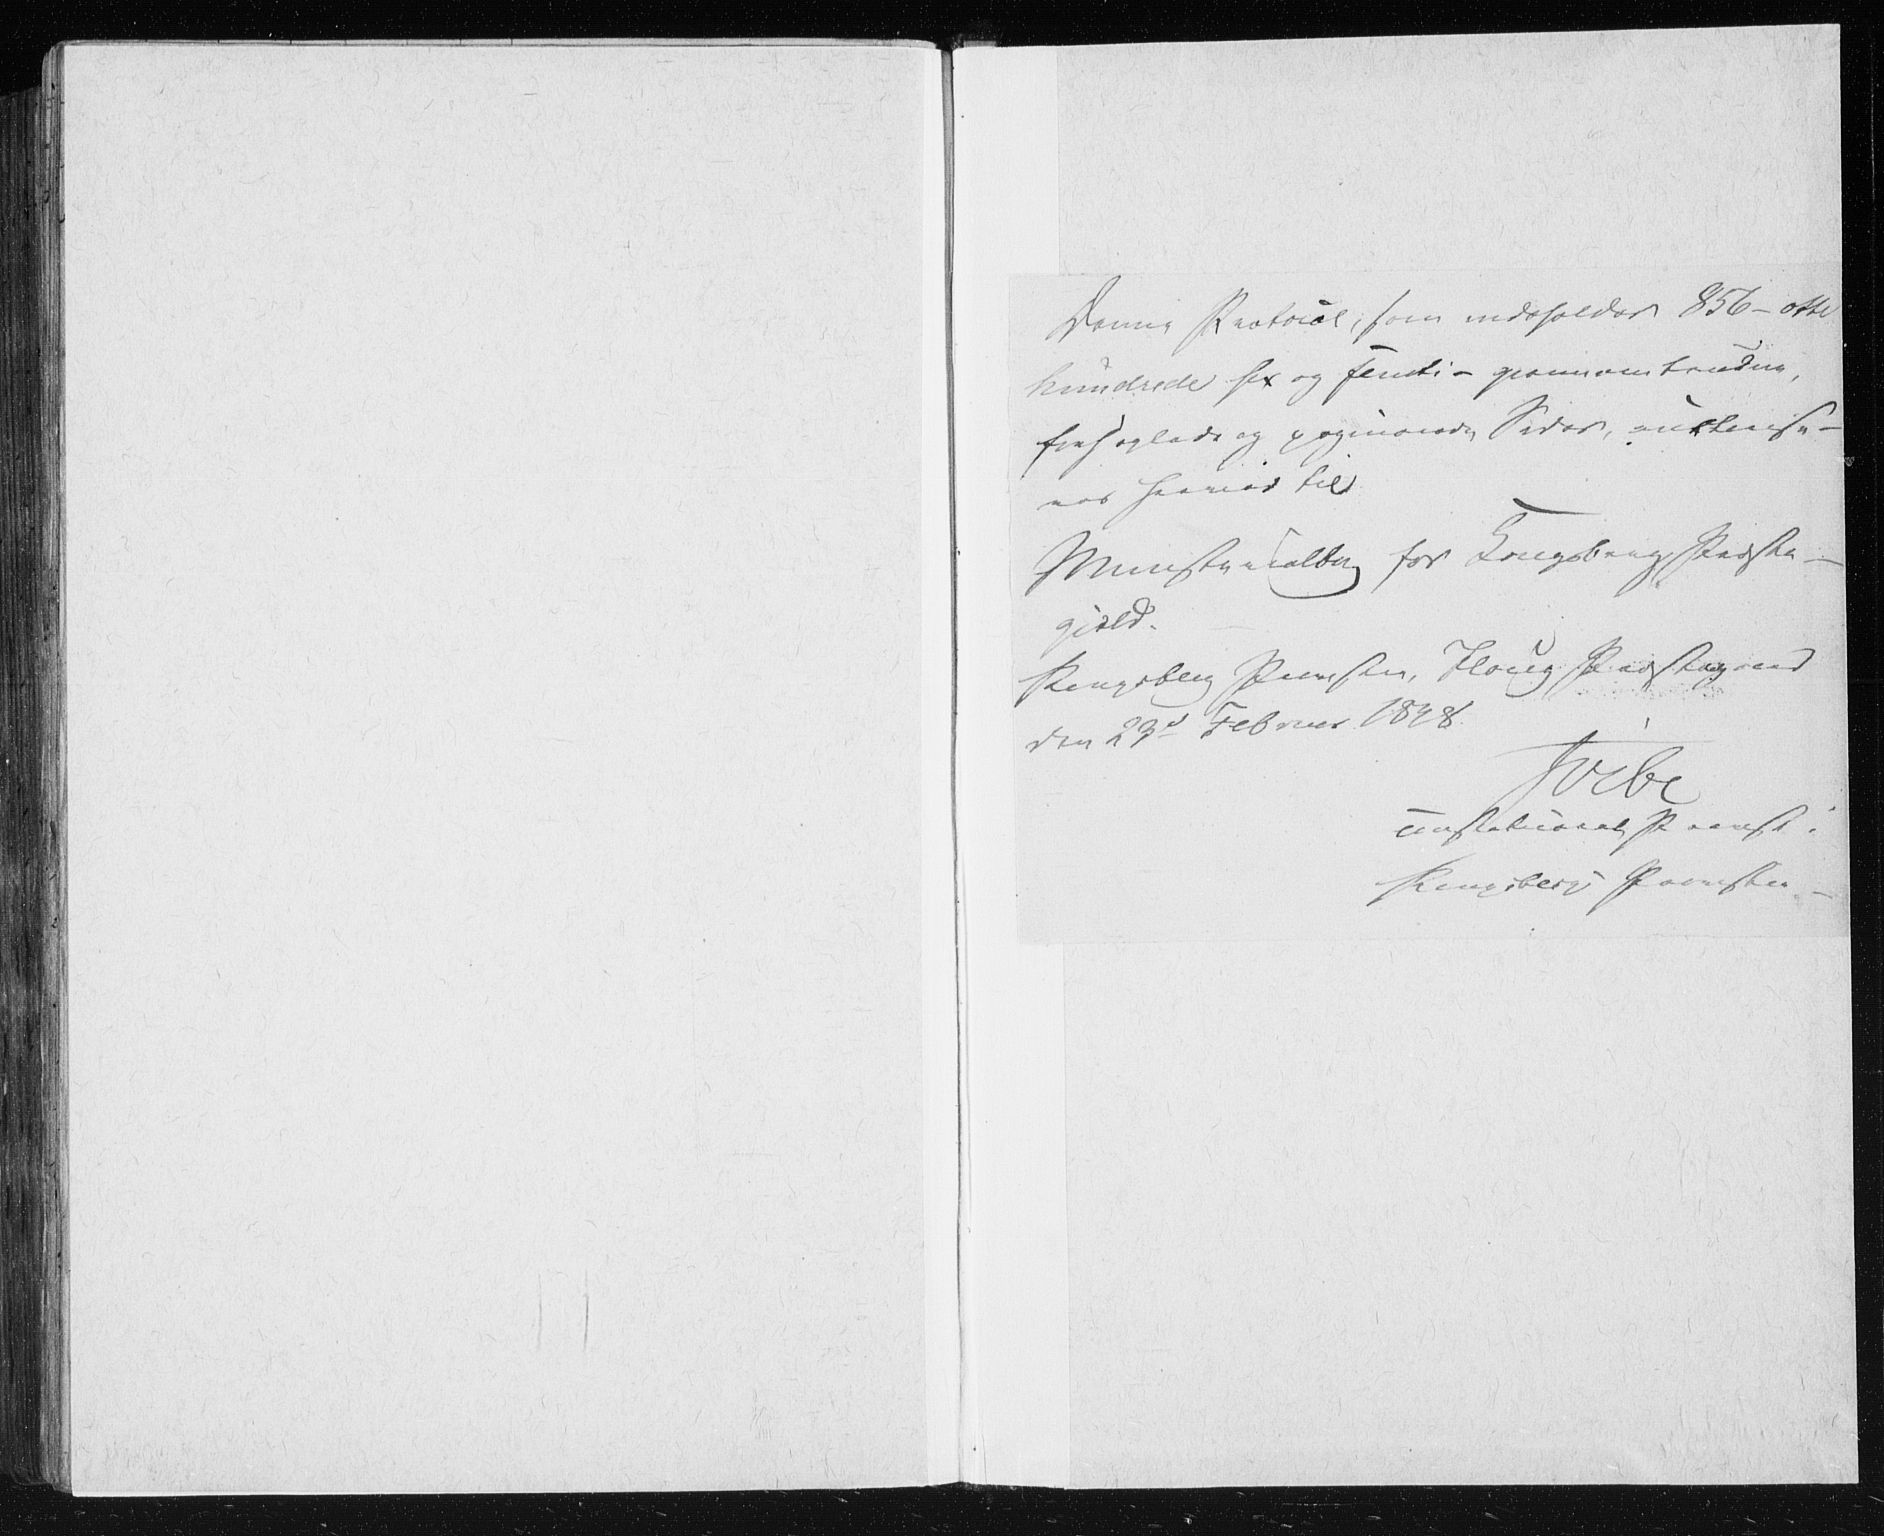 Denne Protocol, som indeholder 856 - otte
hundrede sex og femti - gjennemtrukne,
forseglede og paginerede Sider, authorise-
res herved til
Ministerialbog for Kongsbergs Præste-
gjeld.
Kongsberg Provsti, Houg Præstegaard
den 23d Februar 1848.
constitueret Provst i
Kongsbergs Provsti. -